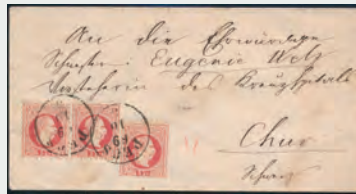 An die Ehrwürdige
Schwester Eugenie Welz
Vorsteherin des Kreuzspitals
Chur
Schweiz